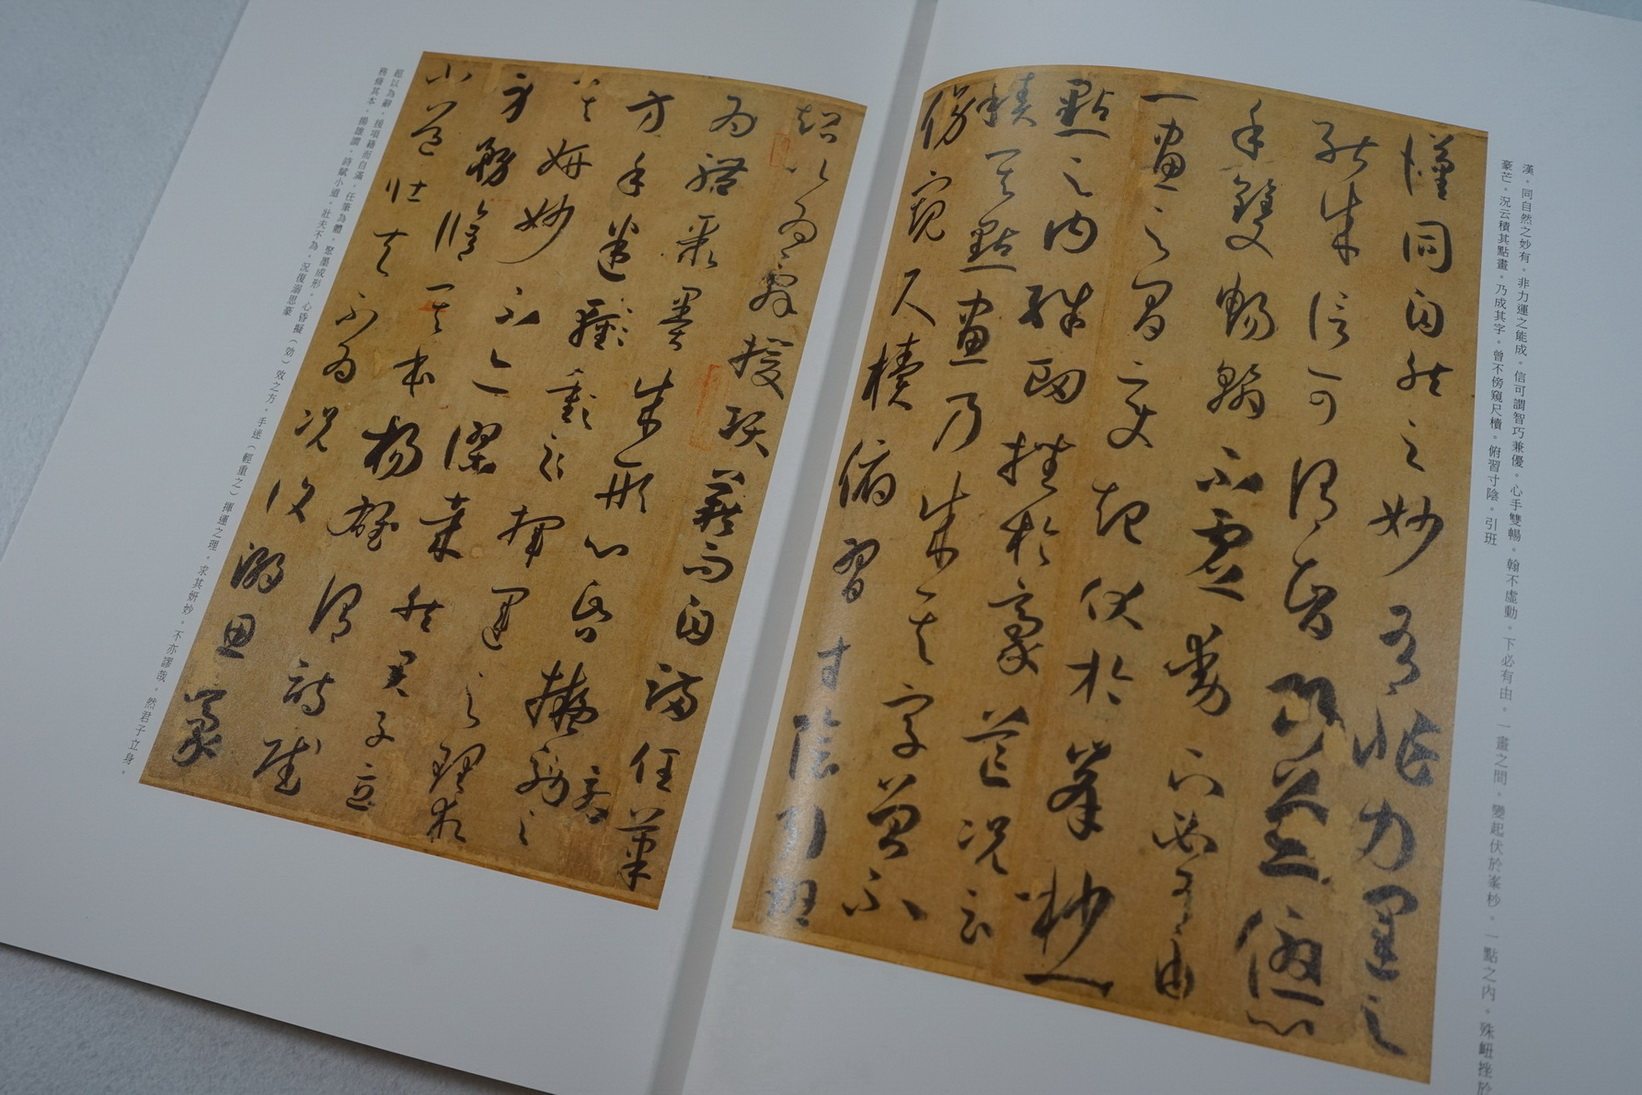 漢。同自然之妙有。非力運之能成。信可謂智巧兼優。心手雙暢。翰不虛動。下必有由。一畫之間。變起伏於峯杪。一點之內。殊衄挫於
豪芒。況云積其點畫。乃成其字。曾不傍窺尺櫝。俯習寸陰。引班
漢同自然之妙有非力運之
能成信可謂智巧兼優心
手雙暢翰不虛動下必有由
一畫之間變起伏於峯杪一
點之內殊衄挫於豪芒況云
積其點畫乃成其字曾不
傍窺尺櫝俯習寸陰引班
超以為辭援項籍而自滿任筆
為體聚墨成形心昏擬効效之
方手迷輕重之揮運之理求
其妍妙不亦謬哉然君子立
身務脩其本楊雄謂詩賦
小道壯夫不為況復溺思豪
超以為辭。援項籍而自滿。任筆為體。聚墨成形。心昏擬（効）效之方。手迷（輕重之）揮運之理。求其妍妙。不亦謬哉。然君子立身。
務脩其本。揚雄謂。詩賦小道。壯夫不為。況復溺思豪